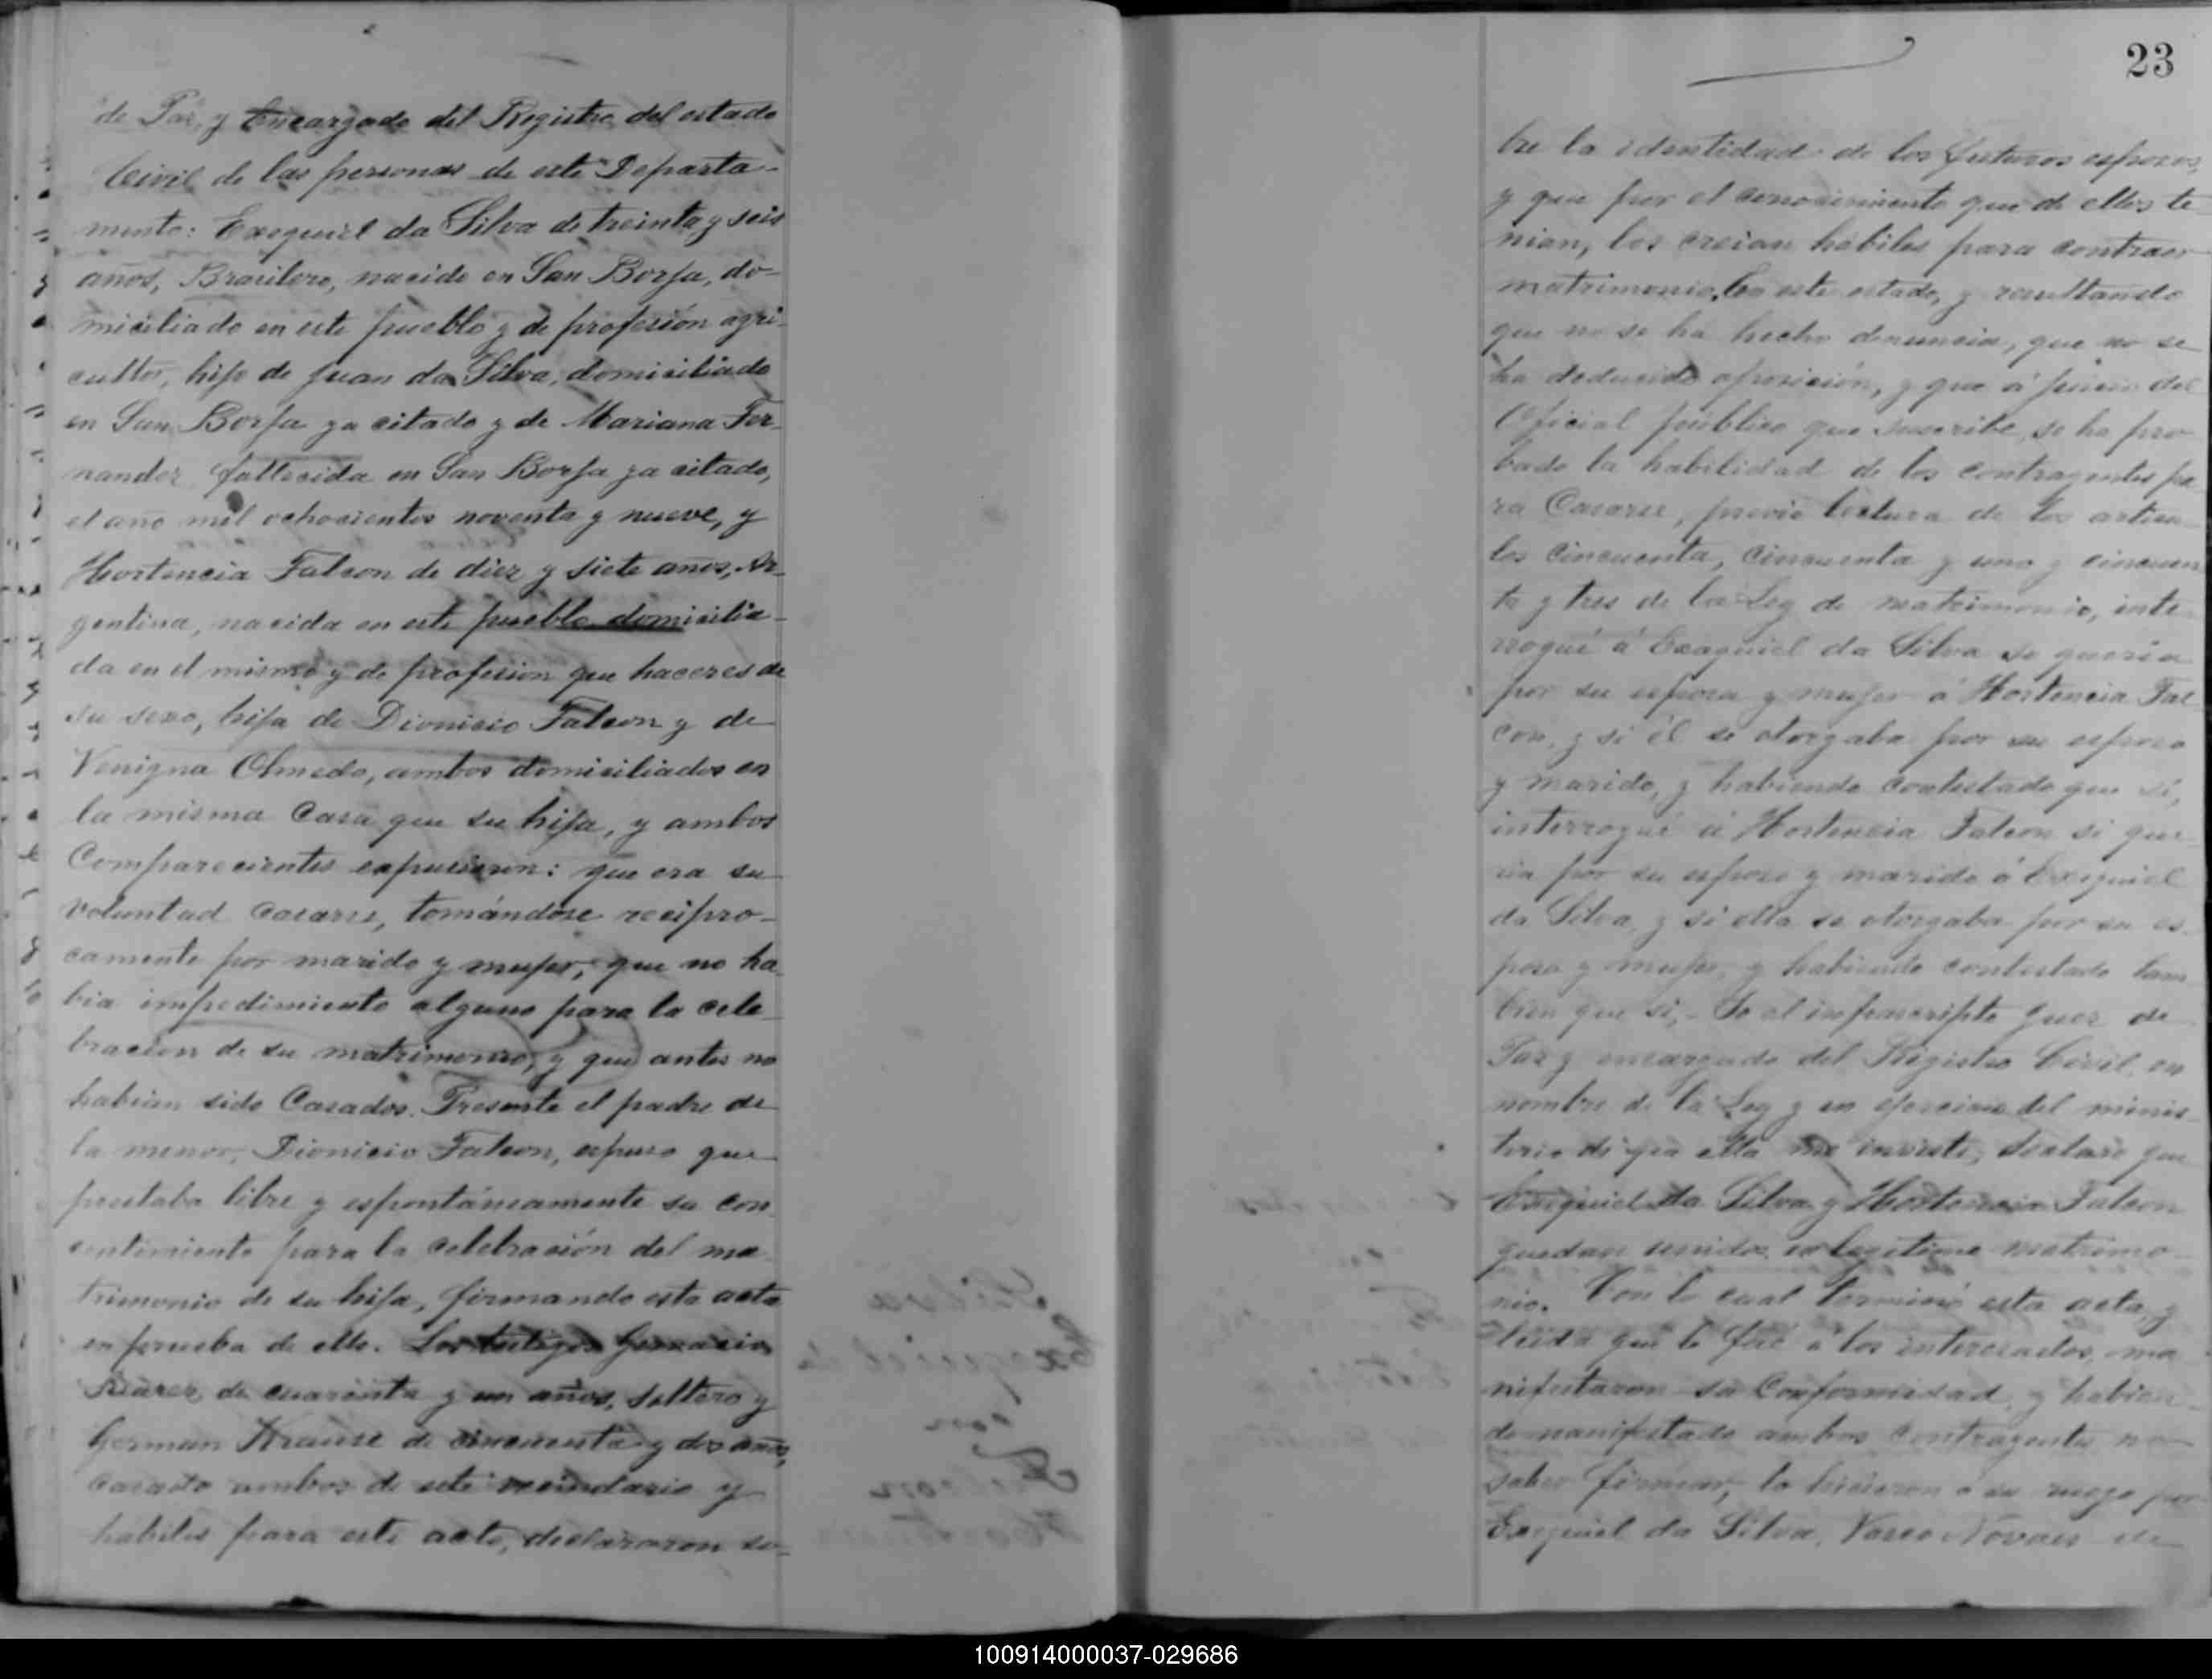 de Paz, y Encargado del Registro del estado
Civil de las personas de este Departa-
mento: Exequiel da Silva de treinta y seis
años, Brasilero, nacido en San Borja, do-
miciliado en este pueblo y de profesión agri-
cultor, hijo de Juan da Silva, domiciliado
en San Borja ya citado y de Mariana Fer-
nandez fallecida en San Borja ya citado,
el año mil ochocientos noventa y nueve, y
Hortencia Falcon de diez y siete años, Ar-
gentina, nacida en este pueblo domicilia-
da en el mismo y de profesion que haceres de
su sexo, hija de Dionicio Falcon y de
Venigna Olmedo, ambos domiciliados en
la misma Casa que su hija, y ambos
Comparecientes expusieron: que era su
voluntad Casarse, tomándose recipro-
camente por marido y mujer, que no ha
bia impedimiento alguno para la cele
bracion de su matrimonio, y que antes no
habian sido Casados. Presente el padre de
la menor, Dionicio Falcon, espuso que
prestaba libre y espontáneamente su con
sentimiento para la celebración del ma
trimonio de su hija, firmando esta acta
en prueba de ello. Los testigos
Suarez, de cuarenta y un años, soltero y
German Krause de cincuenta y dos años,
casado ambos de este vecindario y
hábiles para este acto, declararon so-
23
bre la identidad de los futuros esposos,
y que por el conocimiento que de ellos te
nian, los creian hábiles para contraer
matrimonio. En este estado, y resultando
que no se ha hecho denuncia, que no se
ha deducido oposición, y que á juicio del
Oficial público que suscribe, se ha pro
bado la habilidad de los contrayentes pa
ra Casarse, previo lectura de los articu
los cincuenta, cincuenta y uno y cincuen
ta y tres de la Ley de matrimonio, inte
rrogué á Exequiel da Silva se queria
por su esposa y mujer á Hortencia Fal
con, y si él se otorgaba por su esposo
y marido, y habiendo contestado que sí,
interrogué á Hortencia Falcon si que
ria por su esposo y marido á Exequiel
da Silva, y si ella se otorgaba por su es
posa y mujer, y habiendo contestado tam
bien que si, Yo el infrascripto Juez de
Paz y encargado del Registro Civil, en
nombre de la Ley y en ejercicio del minis
terio de que ella me inviste, declaro que
Exequiel da Silva y Hortencia Falcon
quedan unidos en legitimo matrimo
nio. Con lo cual terminó esta acta, y
leida que le fué á los interesados, ma
nifestaron su Conformidad, y habien
do manifestado ambos Contrayentes no
saber firmar, lo hicieron á su ruego por
Exequiel da Silva, Vasco Nóvaes de
100914000037-029686